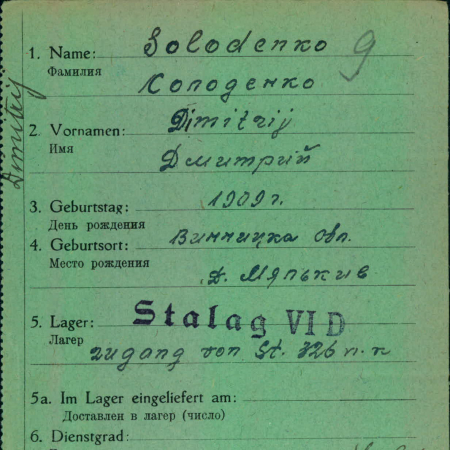 1. Name: Solodenko 9
Фамилия Солоденко
2. Vornamen: Dimitrij
Имя Дмитрий
Dimitrij
3. Geburtstag: 1909 г.
День рождения
4. Geburtsort: Винницка обл.
Место рождения Д.
5. Lager: Stalag VI D
Лагер zugang von St. 326
5a. Im Lager eingeliefert am:
Доставлен в лагер (число)
6. Dienstgrad: